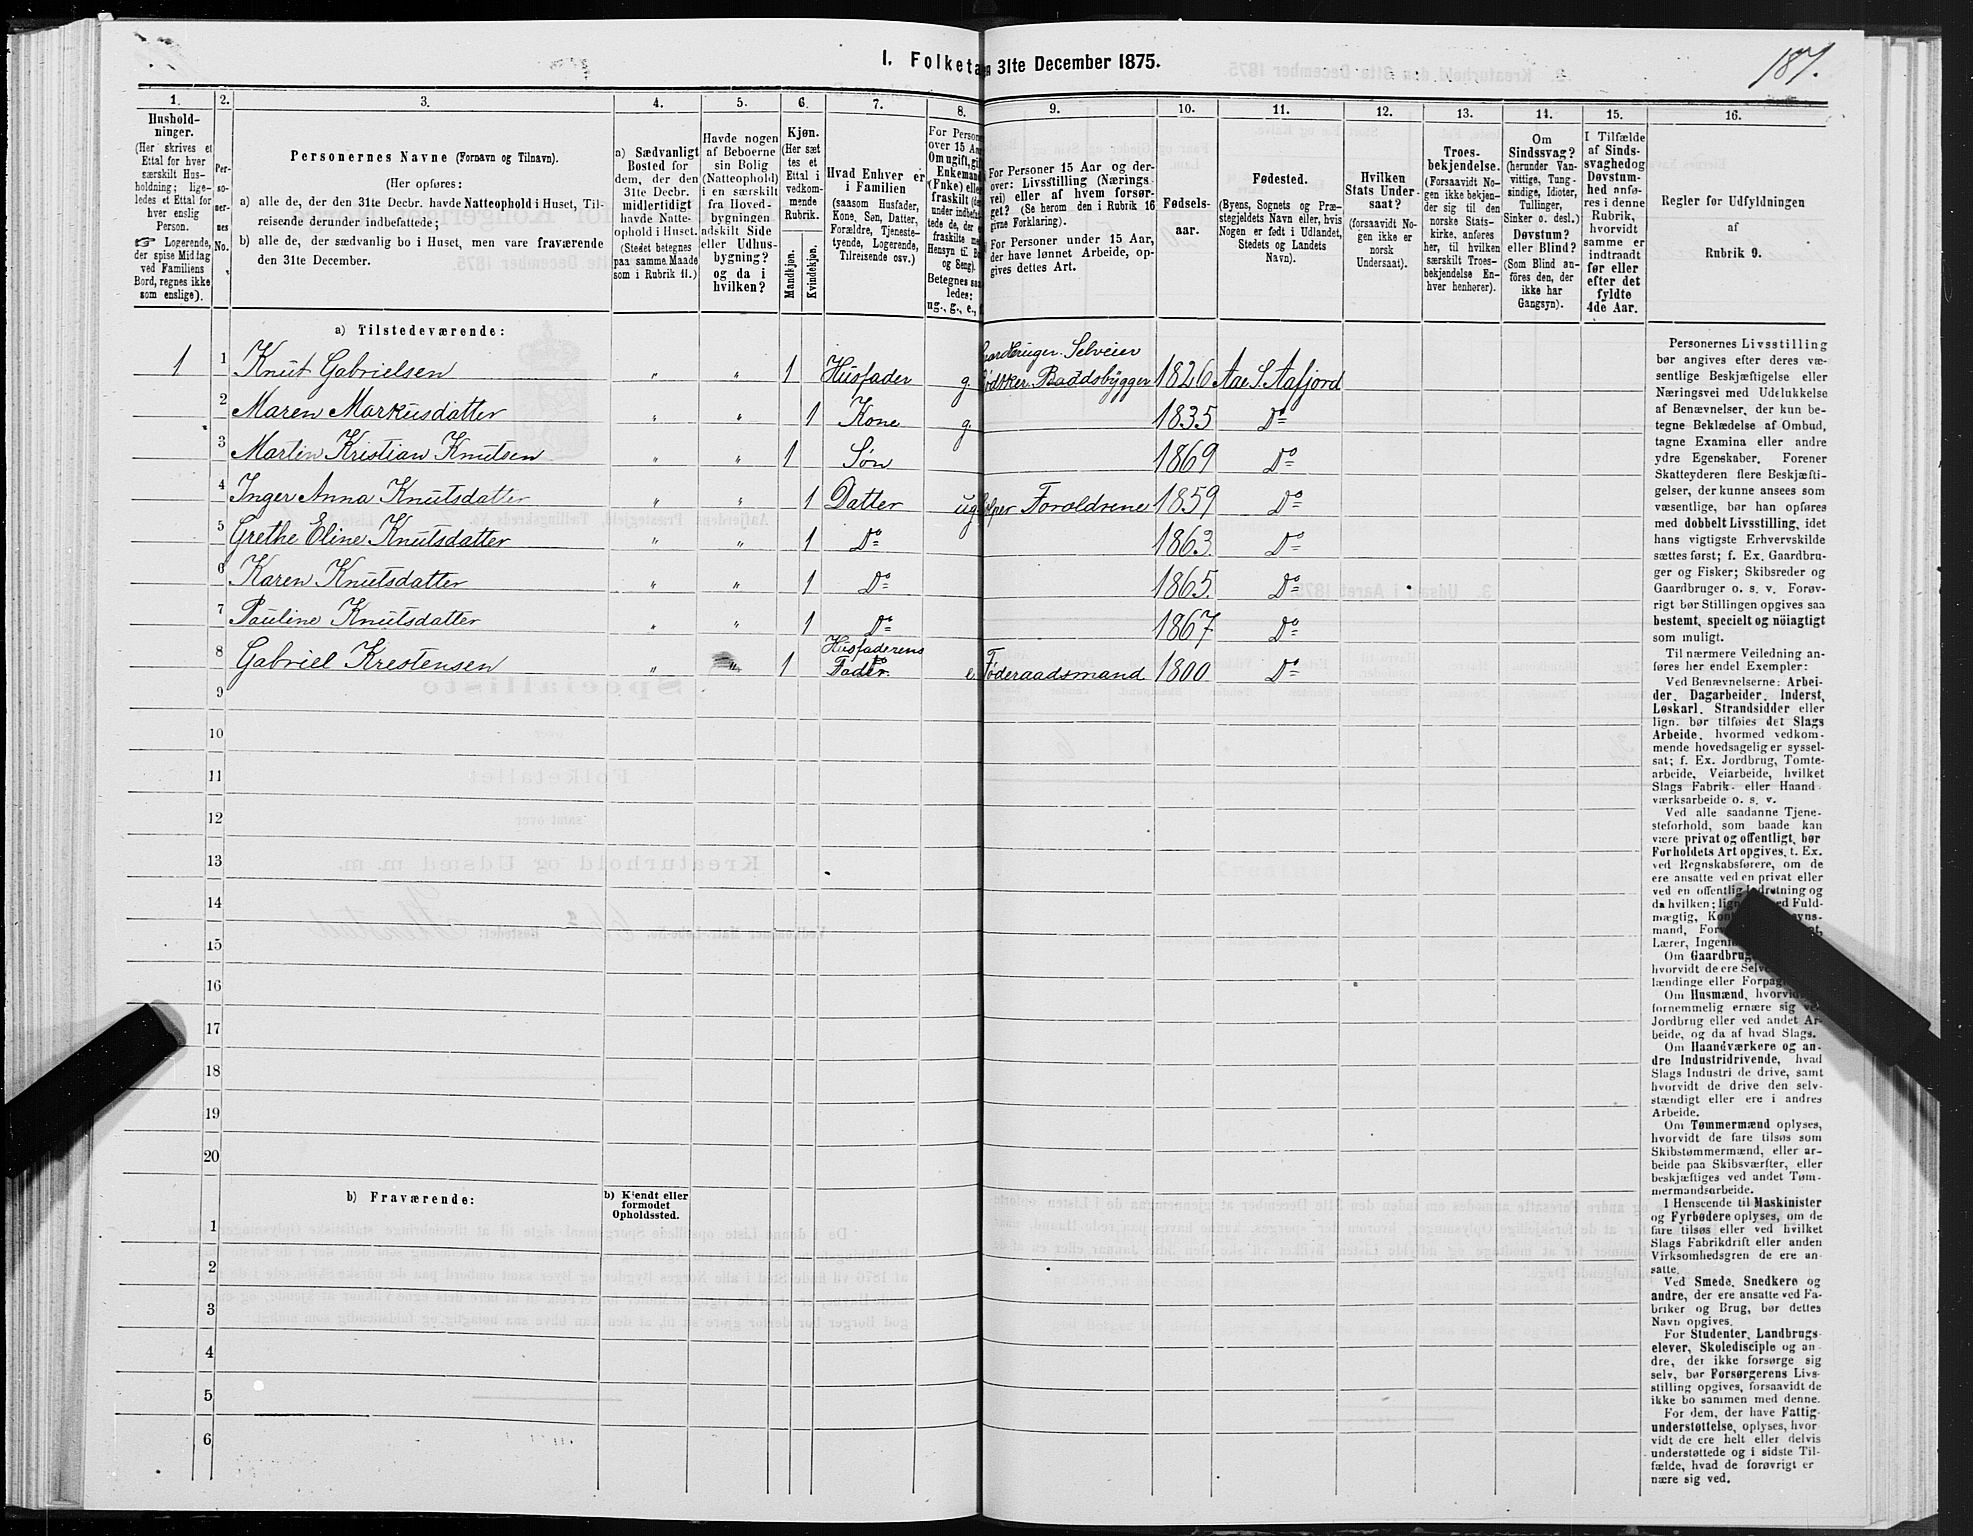 187.
I. Folketa en 31te December 1875.
1. 2. 3. 4. 5. 6. 7. 8. 9. 10. 11. 12. 13. 14. 15. 16.
Hushold-
ninger.
(Her skrives et
Ettal for hver
særskilt Hus-
holdning; lige-
ledes et Ettal for
hver enslig
Person.
☞ Logerende,
der spise Middag
ved Familiens
Bord, regnes ikke
som enslige).
Per-
so-
ner-
nes
No.
Personernes Navne (Fornavn og Tilnavn).
(Her opføres:
a) alle de, der den 31te Decbr. havde Natteophold i Huset, Til-
reisende derunder indbefattede;
b) alle de, der sædvanlig bo i Huset, men vare fraværende
den 31te December.
a) Sædvanligt
Bosted for
dem, der den
31te Decbr.
midlertidigt
havde Natte-
ophold i Huset.
(Stedet betegnes
paa samme Maade
som i Rubrik 11.)
Havde nogen
af Beboerne
sin Bolig
(Natteophold)
i en særskilt
fra Hoved-
bygningen
adskilt Side
eller Udhus-
bygning?
og da i
hvilken?
Kjøn.
(Her sæt
tes et
Ettal i
vedkom-
mende
Rubrik.
Mandkjøn.
Kvindekjøn.
Hvad Enhver er
i Familien
(saasom Husfader,
Kone, Søn, Datter,
Forældre, Tjeneste-
tyende, Logerende,
Tilreisende osv.)
For Persone
over 15 Aar
Om ugift, gift
Enkemand
(Enke) eller
fraskilt
ug., g., e., f.
For Personer 15 Aar og der-
over: Livsstilling (Nærings
vei) eller af hvem forsør-
get? (Se herom den i Rubrik 16
givne Forklaring).
For Personer under 15 Aar,
der have lønnet Arbeide, op-
gives dettes Art.
Fødsels-
aar.
Fødested.
(Byens, Sognets og Præ-
stegjeldets Navn eller, hvis
Nogen er født i Udlandet,
Stedets og Landets
Navn).
Hvilken
Stats Under-
saat?
(forsaavidt No-
gen ikke er
norsk
Undersaat).
Troes-
bekjendelse.
(Forsaavidt No-
gen ikke bekjen-
der sig til den
norske Stats-
kirke, anføres
her, til hvilken
særskilt Troes-
bekjendelse En-
hver henhører).
Om
Sindssvag?
(herunder Van-
vittige, Tung-
sindige, Idioter,
Tullinger,
Sinker o. desl.)
Døvstum?
eller Blind?
(Som Blind an-
føres den, der
ikke har
Gangsyn).
I Tilfælde
af Sinds-
svaghedog
Døvstum-
hed anfø-
res i denne
Rubrik,
hvorvidt
samme er
indtraadt
før eller
efter det
fyldte
4de Aar.
Regler for Udfyldningen
af
Rubrik 9.
a) Tilstedeværende:
Gaardbruger Selveier
1 1 Knut Gabrielsen " " 1 Husfader g. Baadsbygger 1826 Aae S. Aafjord
2 Maren Markusdatter " " 1 Kone g. 1835 Do
3 Martin Kristian Knutsen " " 1 Søn 1869 Do
4 Inger Anna Knutsdatter " " 1 Datter ug hjelper Forældrene 1859 Do
5 Grethe Eline Knutsdatter " " 1 Do 1863 Do
6 Karen Knutsdatter " " 1 Do 1865. Do
7 Pauline Knutsdatter " " 1 Do 1867 Do
8 Gabriel Krestensen " " 1 Husfaderens Fader. e. Føderaadsmand 1800 Do
9
10
11
12
13
14
15
16
17
18
19
20
b) Fraværende:
b) Kjendt eller
formodet
Opholdssted.
1
2
3
4
5
6
Personernes Livsstilling
bør angives efter deres væ-
sentlige Beskjæftigelse eller
Næringsvei med Udelukkelse
af Benævnelser, der kun be-
tegne Beklædelse af Ombud,
tagne Examina eller andre
ydre Egenskaber. Forener
Skatteyderen flere Beskjæfti-
gelser, der kunne ansees som
væsentlige, bør han opføres
med dobbelt Livsstilling, idet
hans vigtigste Erhvervskilde
sættes først; f. Ex. Gaardbru-
ger og Fisker; Skibsreder og
Gaardbruger o. s. v. Forøv-
rigt bør Stillingen opgives saa
bestemt, specielt og nöiagtigt
som muligt.
Til nærmere Veiledning an-
føres her endel Exempler:
Ved Benævnelserne: Arbei-
der, Dagarbeider, Inderst,
Løskarl, Strandsidder eller
lign. bør tilføies det Slags
Arbeide, hvormed vedkom-
mende hovedsagelig er syssel-
sat; f. Ex. Jordbrug, Tomte-
arbeide, Veiarbeide, hvilket
Slags Fabrik- eller Haand
værksarbeide o. s. v.
Ved alle saadanne Tjene-
steforhold, som baade kan
være privat og offentligt, bør
Forholdets Art opgives, t. Ex.
ved Regnskabsførere, om de
ere ansatte ved en privat eller
ved en offentlig Indretning og
da hvilken; lign ed Fuld-
mægtig, Kont yns-
mand, Forv
Lærer, Ingeni
Om Gaardbrug
hvorvidt de ere Selve
lændinge eller Forpag
Om Husmænd, hvorvid
fornemmelig ernære sig ved
Jordbrug eller ved andet Ar-
beide, og da af hvad Slags.
Om Haandværkere og an-
dre Industridrivende, hvad
Slags Industri de drive, samt
hvorvidt de drive den selv-
stændigt eller ere i andres
Arbeide.
Om Tømmermænd oplyses,
hvorvidt de fare tilsøs som
Skibstømmermænd, eller ar-
beide paa Skibsværfter, eller
beskjæftiges ved andet Tøm-
mermandsarbeide.
I Henseende til Maskinister
og Fyrbødere oplyses, om de
fare tilsøs eller ved hvilket
Slags Fabrikdrift eller anden
Virksomhedsgren de ere an-
satte.
Ved Smede, Snedkere og
andre, der ere ansatte ved Fa-
briker og Brug, bør dettes
Navn opgives.
For Studenter, Landbrugs-
elever, Skoledisciple og an-
dre, der ikke forsørge sig
selv, bør Forsørgerens Livs-
stilling opgives, forsaavidt de
ikke bo sammen med denne.
For dem, der have Fattig-
understøttelse, oplyses, hvor
vidt de ere helt eller delvis
understøttede og i sidste Til-
fælde, hvad de forøvrigt er
nære sig ved.